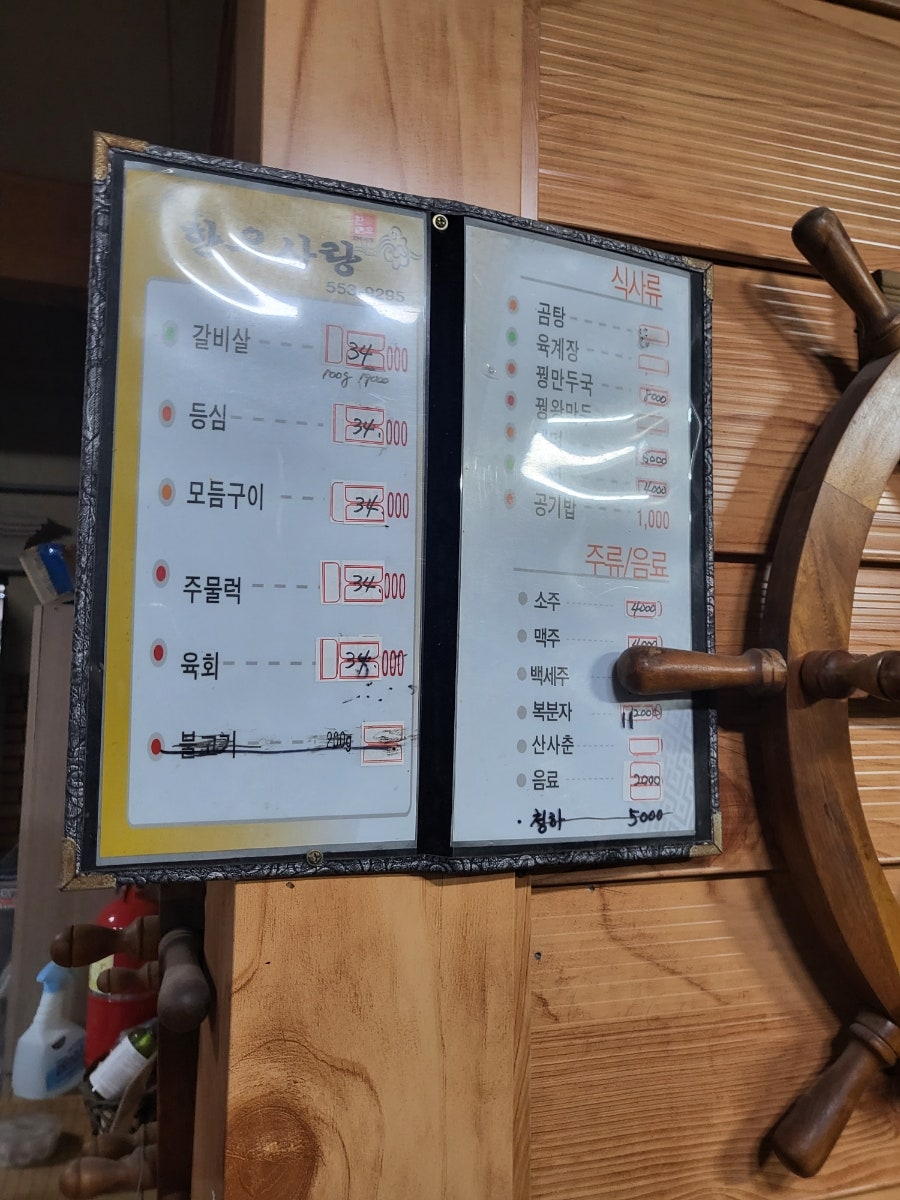 한우사랑
553-9295
갈비살 34,000
100g 17000
등심 34,000
모듬구이 34,000
주물럭 34,000
육회 34,000
불고기 200g
식사류
곰탕
육계장
꿩만두국 8000
꿩왕만두
5000
4000
공기밥 1,000
주류/음료
소주 4000
맥주 4000
백세주
복분자 12000
산사춘
음료 2000
· 청하 5000